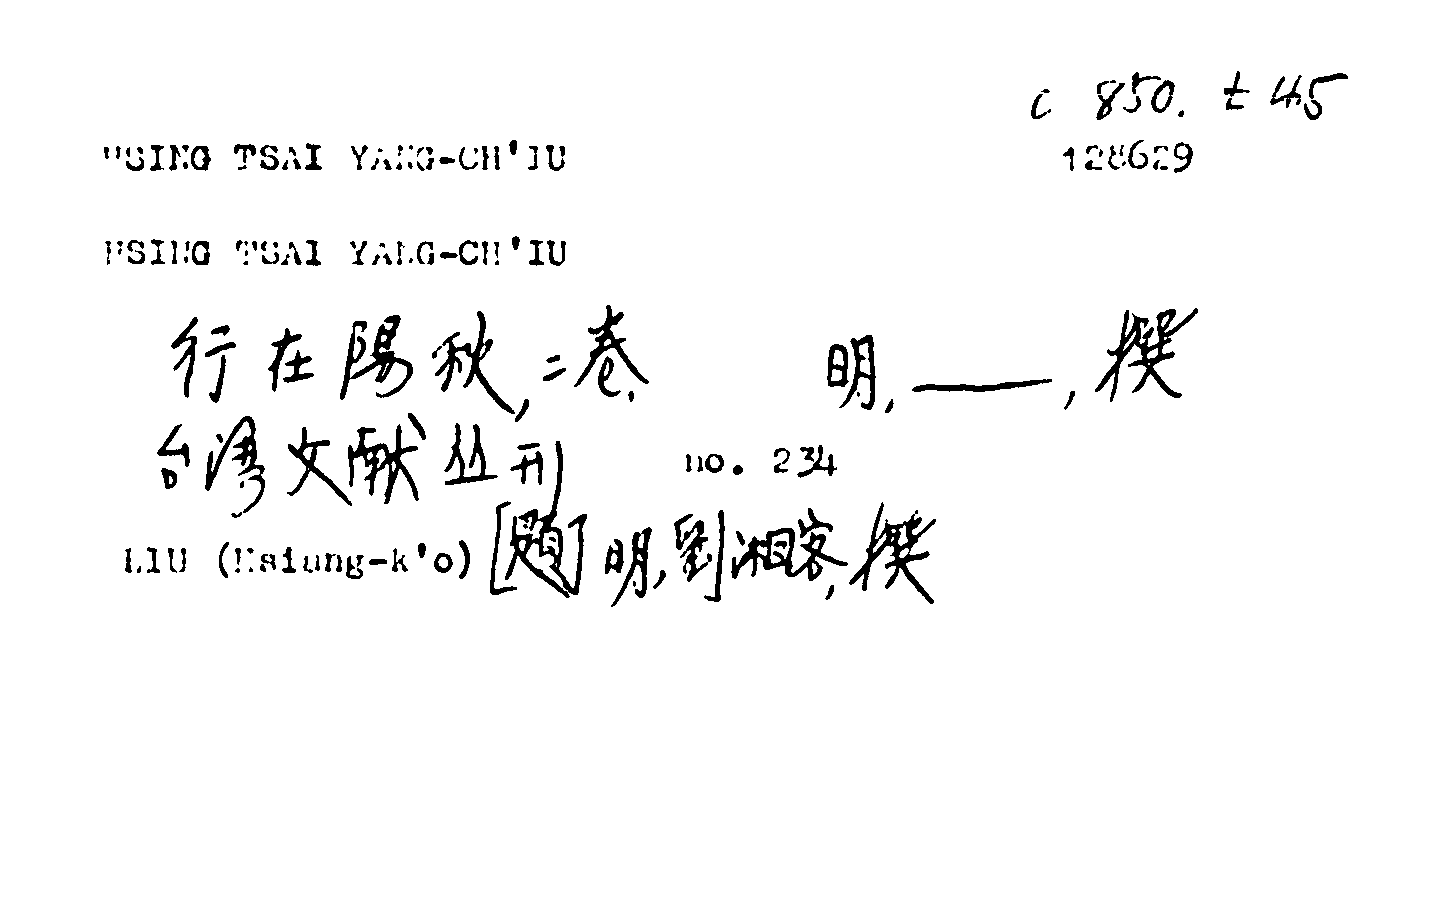 c 850. t 45
HSING TSAI YANG-CH'IU 128629
HSING TSAI YANG-CH'IU
行在陽秋,二卷. 明,——,撰
台湾文献丛刊 no. 234
LIU (Hsiang-k'o) [題] 明,劉湘客,撰